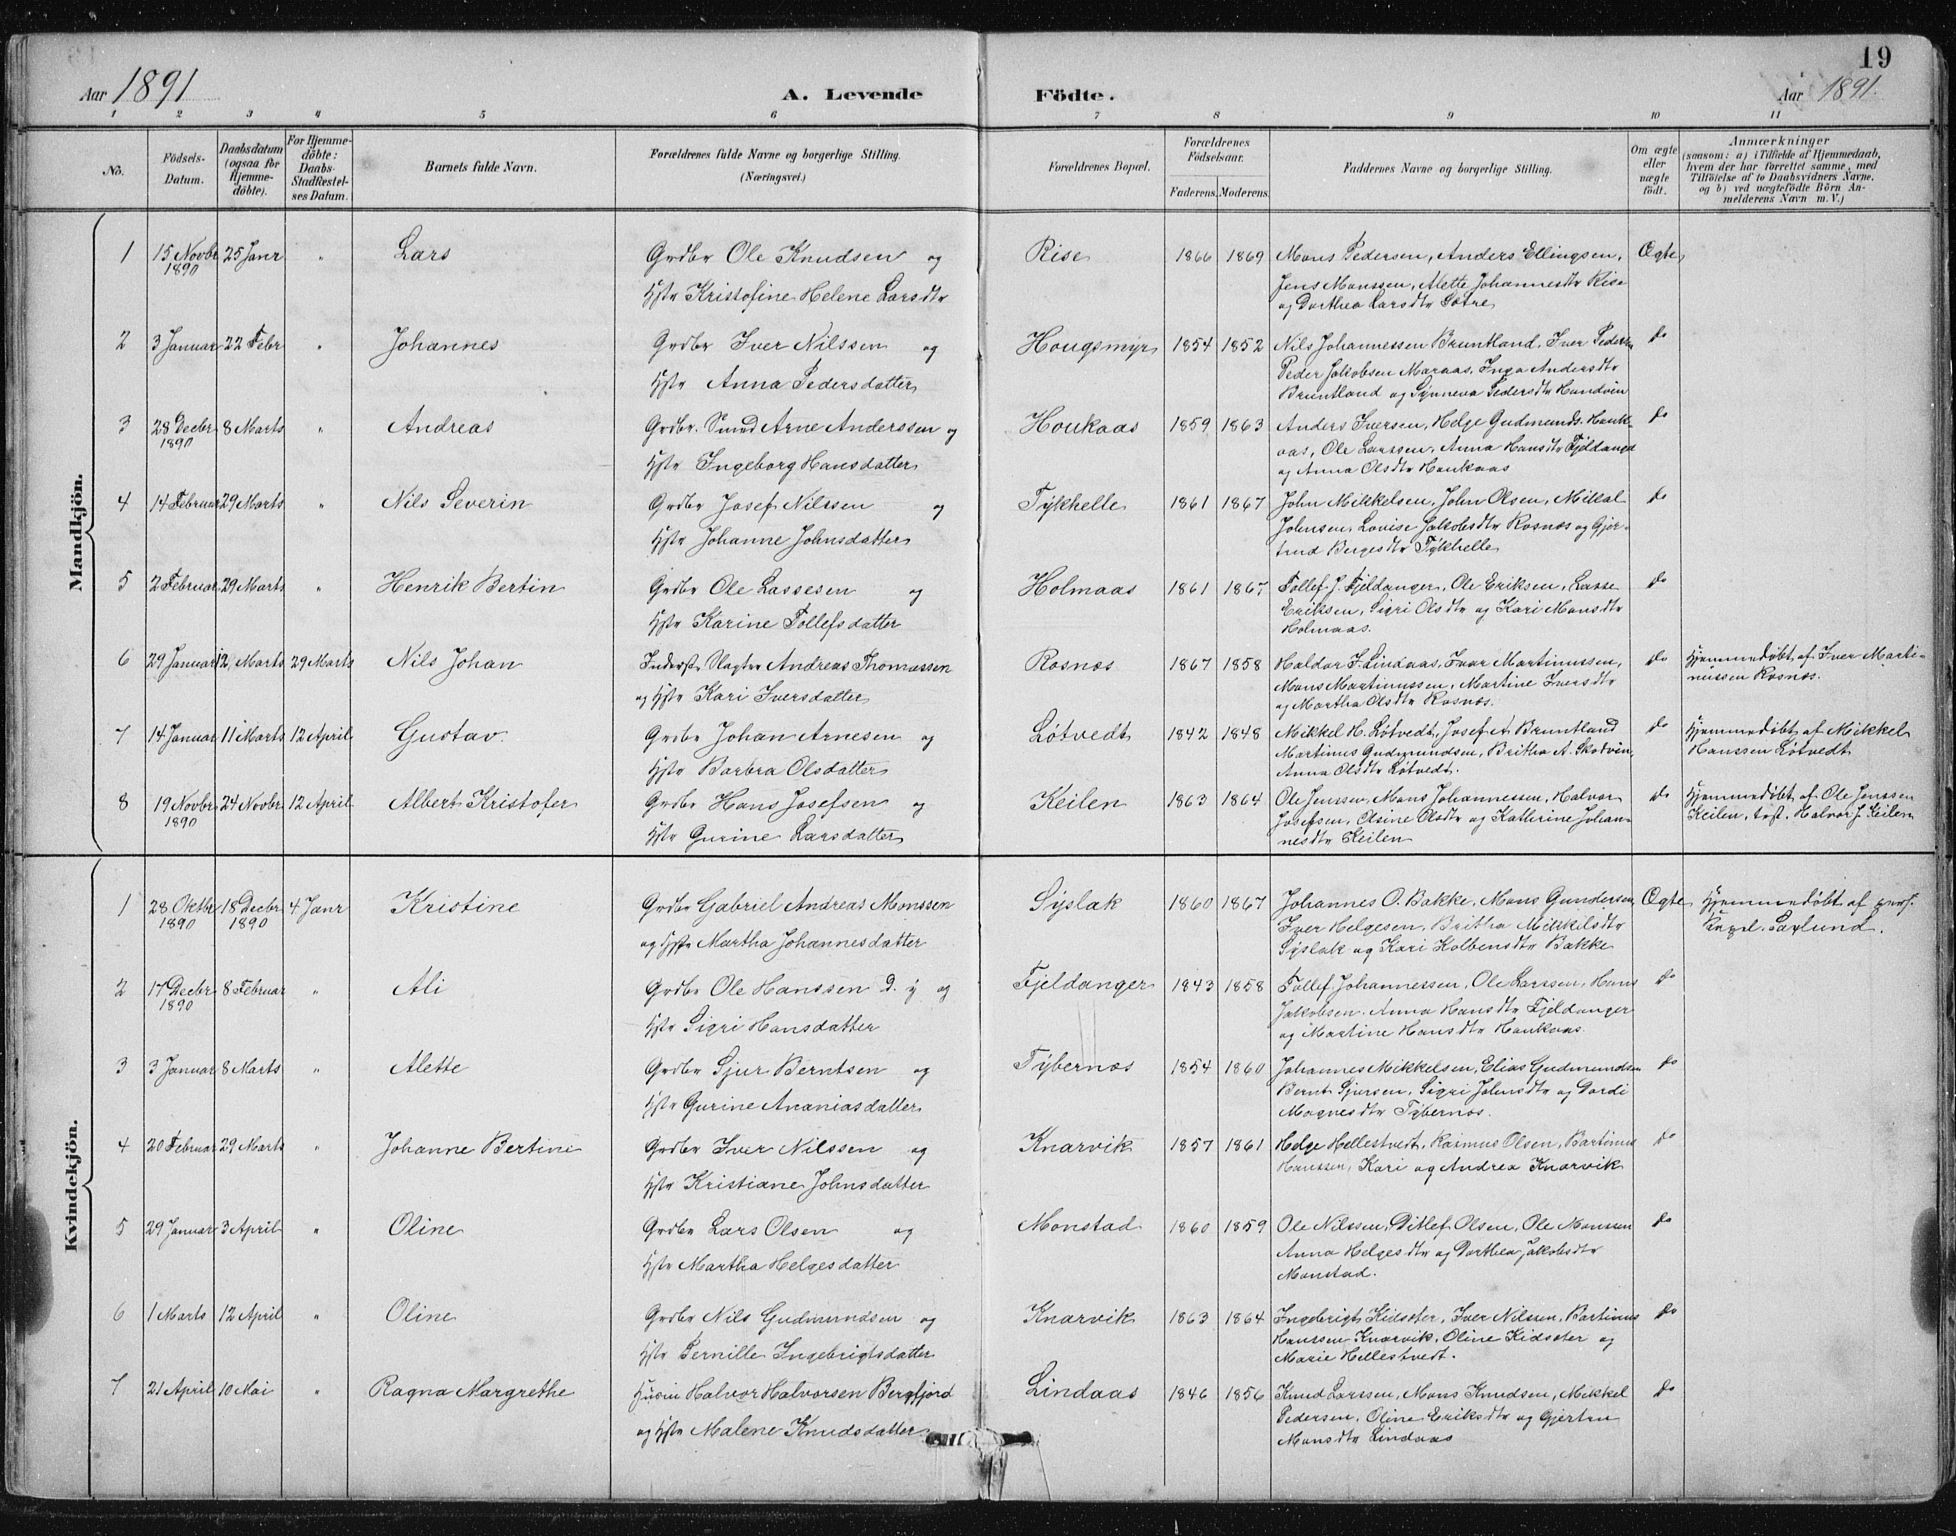 19
Aar 1891 A. Levende Födte. Aar 1891.
1 2 3 4 5 6 7 8 9 10 11
No. Födsels-Datum. Daabsdatum (ogsaa för Hjemme-döbte). For Hjemme-döbte: Daabs-Stadfæstel-ses Datum. Barnets fulde Navn. Forældrenes fulde Navne og borgerlige Stilling. (Næringsvei.) Forældrenes Bopæl. Forældrenes Födselsaar. Faderens. Moderens. Faddernes Navne og borgerlige Stilling. Om ægte eller uægte födt. Anmærkninger (saasom: a) i Tilfælde af Hjemmedaab, hvem der har forrettet samme, med Tilföielse af to Daabsvidners Navne, og b) ved uægtefödte Börn An-melderens Navn m. V.)
Mandkjön.
1 15 Novbr 25 Janr " Lars Grdbr Ole Knudsen og Rise 1866 1869 Mons Pedersen, Anders Ellingsen, Øgte
1890 Hstr Kristofine Helene Larsdtr Jens Monssen, Alette Johannesdtr Rise
og Dorthea Larsdtr Sætre
2 3 Januar 22 Febr " Johannes Grdbr Iver Nilssen og Hougsmyr 1854 1852 Nils Johannessen Bruntland, Iver Pedersen do
Hstr Anna Pedersdatter Peder Jakobsen Maraas, Inga Andersdtr
Bruntland og Synneva Pedersdtr Hundvin
3 28 Decbr 8 Marts " Andreas Grdbr. Smed Arne Anderssen og Houkaas 1859 1863 Anders Iversen, Helge Gudmunds. Hauk- do
1890 Hstr Ingeborg Hansdatter aas, Ole Larssen, Anna Hansdtr Fjeldanger
og Anna Olsdtr Haukaas
4 14 Februar 29 Marts " Nils Severin Grdbr Josef Nilssen og Tykhelle 1861 1867 John Mikkelsen, John Olsen, Mikal do
Hstr Johanne Johnsdatter Johnsen, Lovise Jakobsdtr Rosnæs og Gjer-
trud Bergesdtr Tykhelle
5 2 Februar 29 Marts " Henrik Bertin Grdbr Ole Lassesen og Holmaas 1861 1867 Tollef J. Fjeldanger, Ole Eriksen, Lasse do
Hstr Karine Tollefsdatter Eriksen, Sigri Olsdtr og Kari Monsdtr
Holmaas.
6 29 Januar 12 Marts 29 Marts Nils Johan Inderst Slagter Andreas Thomassen Rosnæs 1867 1858 Haldor I. Lindaas, Iver Martinussen, do Hjemmedøbt af Iver Marti-
og Hstr Kari Iversdatter Mons Martinussen, Martine Iversdtr nussen Rosnæs.
og Martha Olsdtr Rosnæs.
7 14 Januar 11 Marts 12 April Gustav. Grdbr Johan Arnesen og Løtvedt 1842 1848 Mikkel H. Løtvedt, Josef A Bruntland do Hjemmedøbt af Mikkel
Hstr Barbra Olsdatter Martinus Gudmundsen, Britha A. Skodvin, Hanssen Løtvedt
Anna Olsdtr Løtvedt.
8 19 Novbr 24 Novbr 12 April Albert Kristofer Grdbr Hans Josefsen og Keilen 1863 1864 Ole Jenssen, Mons Johannessen, Halvor do Hjemmedøbt af Ole Jenssen
1890 Hstr Gurine Larsdatter Josefsen, Olsine Olsdtr og Katherine Johan- Keilen, Halvor J. Keilen
nesdtr Keilen
Kvindekjön.
1 28 Oktbr 18 Decbr 4 Janr Kristine Grdbr Gabriel Andreas Monssen Syslak 1860 1867 Johannes O. Bakke, Mons Gundersen Øgte Hjemmedøbt af pers.
1890 1890 og Hstr Martha Johannesdatter Iver Helgesen, Britha Mikkelsdtr Kapel. Saxlund.
Syslak og Kari Kolbensdtr Bakke
2 17 Decbr 8 Februar " Ali Grdbr Ole Hanssen D. y og Fjeldanger 1843 1858 Tollef Johannessen, Ole Larssen, Hans do
1890 Hstr Sigri Hansdatter Jakobsen. Anna Hansdtr Fjeldanger
og Martine Hansdtr Haukaas.
3 3 Januar 8 Marts " Alette Grdbr Sjur Berntsen og Tybernæs 1854 1860 Johannes Mikkelsen, Elias Gudmundsen do
Hstr Gurine Ananiasdatter Bernt Sjursen, Sigri Johnsdtr og Dordi
Magnesdtr Tybernæs.
4 20 Februar 29 Marts " Johanne Bertine Grdbr Iver Nilssen og Knarvik 1857 1861 Helge Hellestvedt, Rasmus Olsen, Bartinus do
Hstr Kristiane Johnsdatter Hanssen, Kari og Andrea Knarvik
5 29 Januar 3 April " Oline Grdbr Lars Olsen og Monstad 1860 1859 Ole Nilssen, Ditlef Olsen, Ole Monssen do
Hstr Martha Helgesdatter Anna Helgesdtr og Dorthea Jakobsdtr
Monstad.
6 1 Marts 12 April " Oline Grdbr Nils Gudmundsen og Knarvik 1863 1864 Ingebrigt Kidsæter, Iver Nilssen, Bartinus do
Hstr Pernille Ingebrigtsdatter Hanssen Knarvik, Oline Kidsæter og
Marie Hellestvedt.
7 21 April 10 Mai " Ragna Margrethe Husm Halvor Halvorsen Bergfjord Lindaas 1846 1856 Knud Larssen, Mons Knudsen, Mikkel do
og Hstr Malene Knudsdatter Pedersen, Oline Eriksdtr og Gjertru
Monsdtr Lindaas